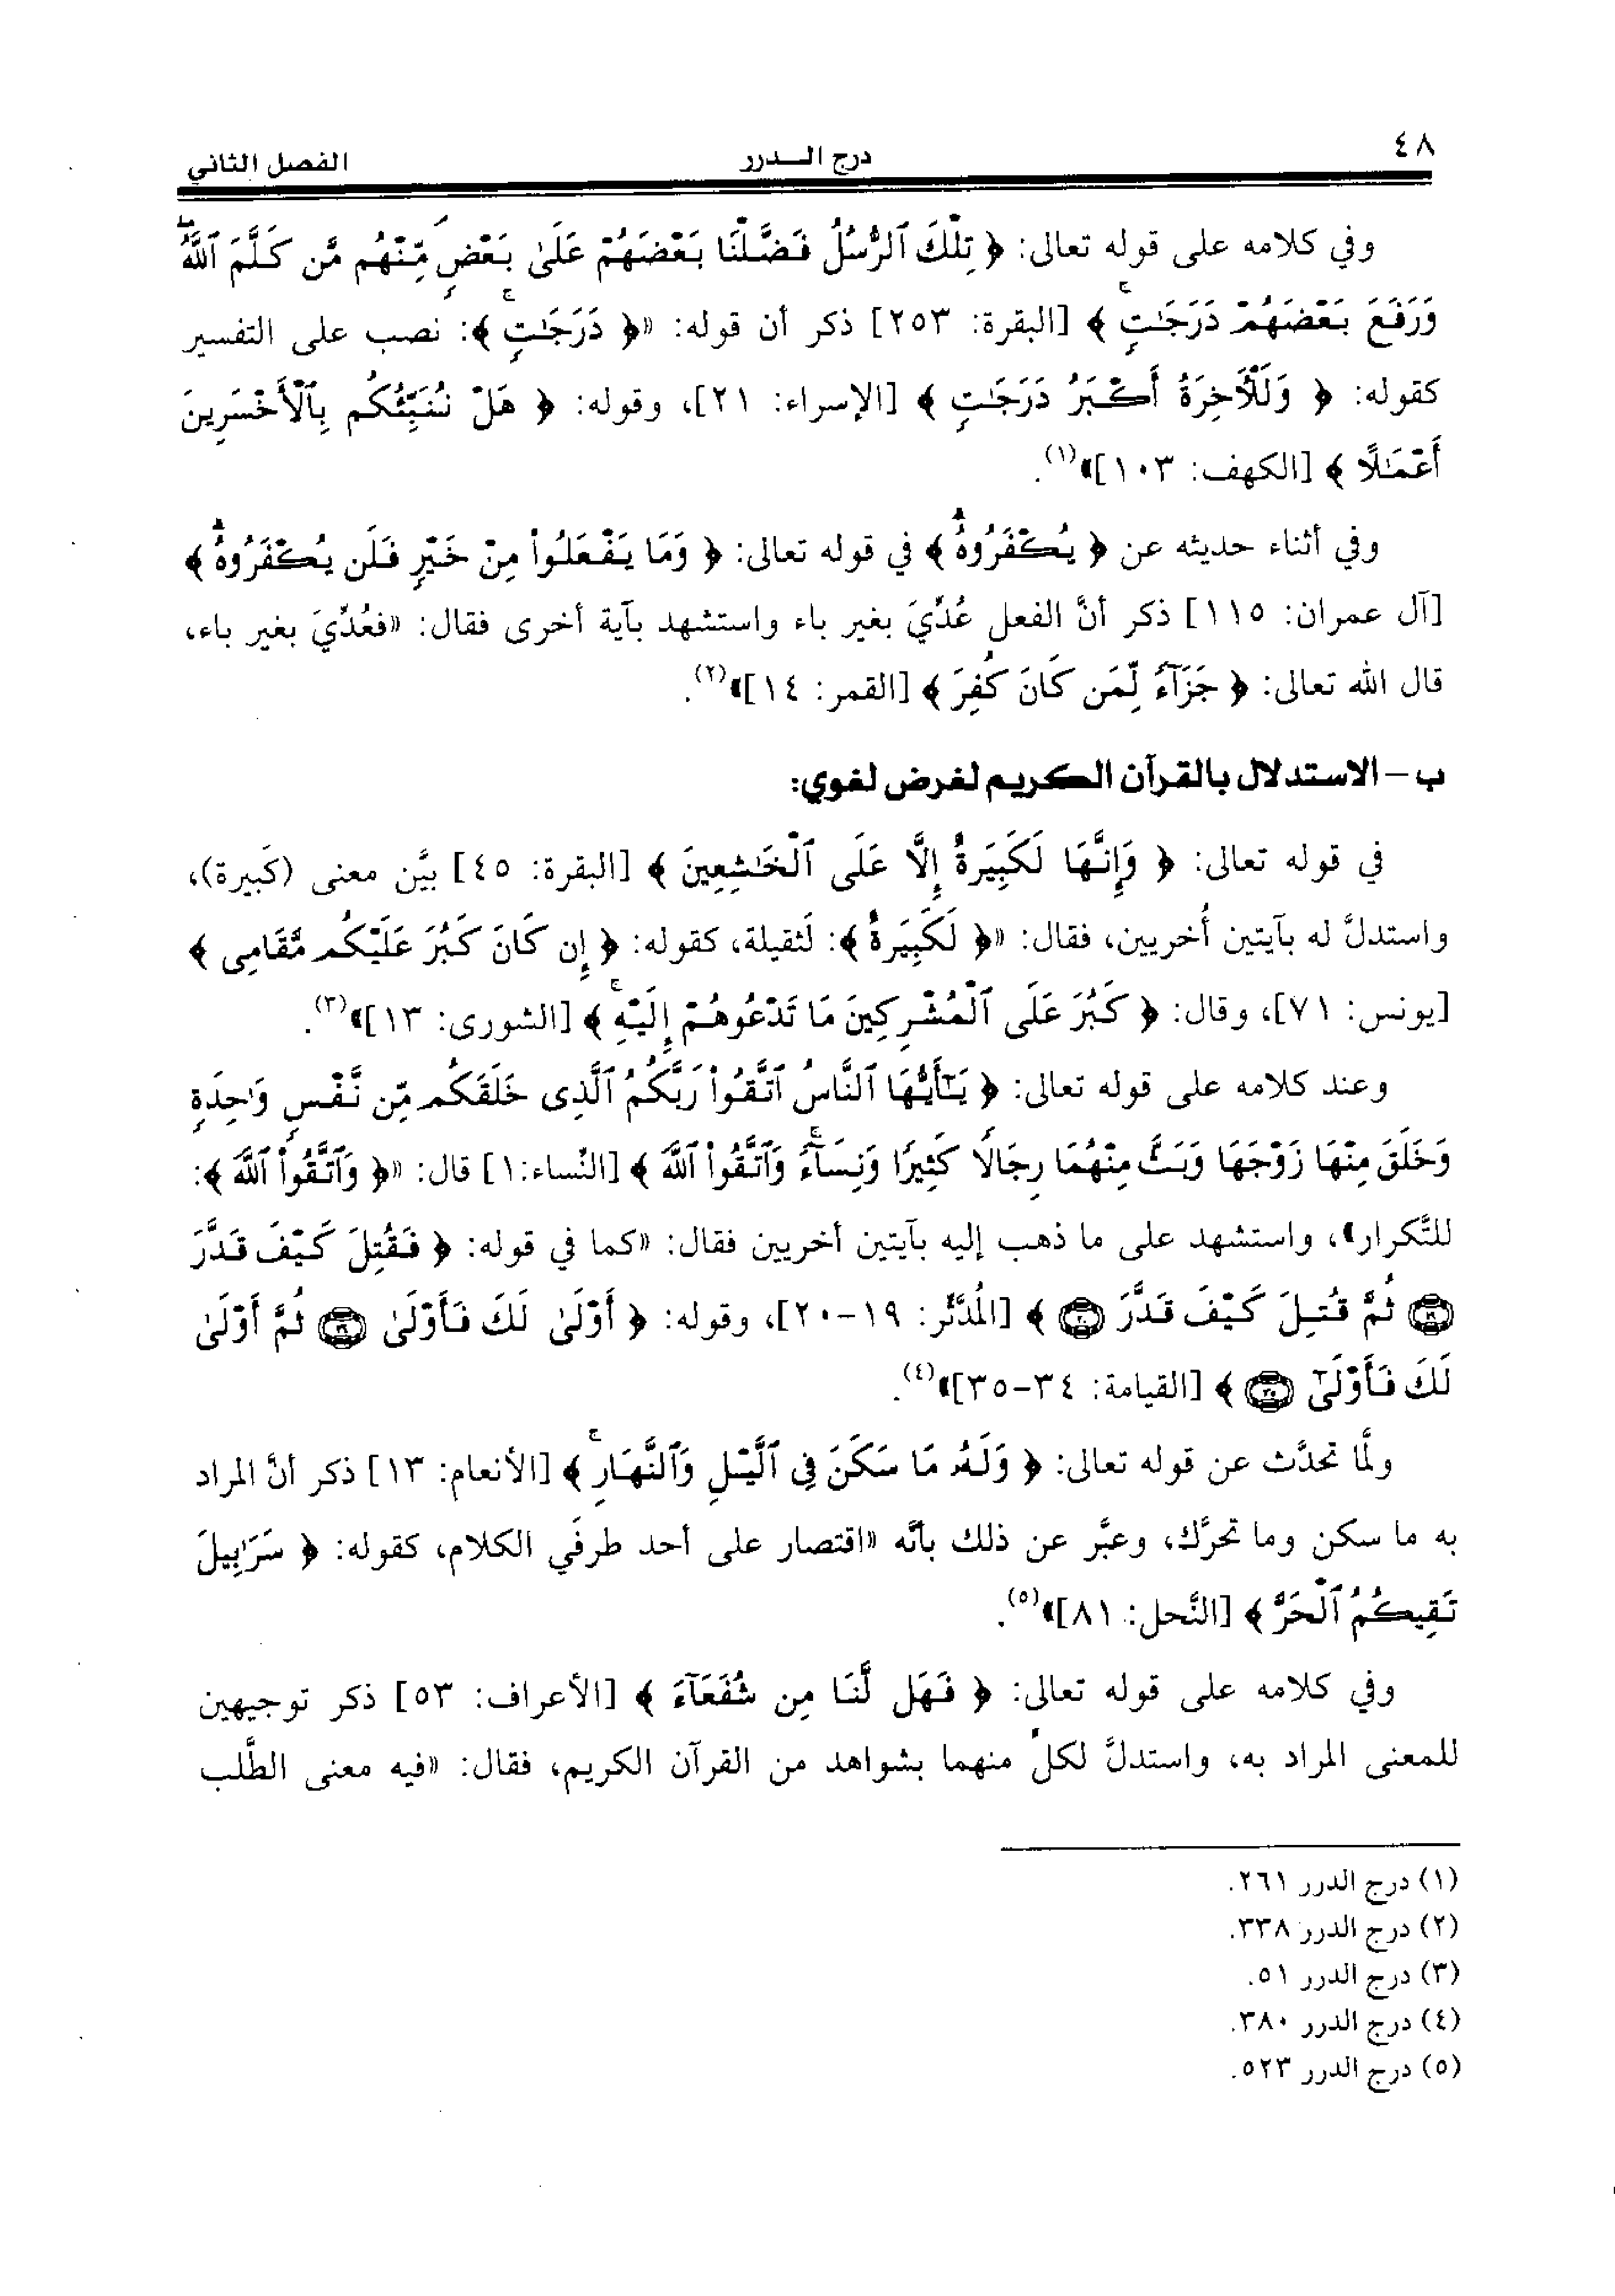 ٤٨ درج الـــدرر الفصل الثاني
وفي كلامه على قوله تعالى: ﴿ تِلْكَ ٱلرُّسُلُ فَضَّلْنَا بَعْضَهُمْ عَلَىٰ بَعْضٍۘ مِّنْهُم مَّن كَلَّمَ ٱللَّهُۖ
وَرَفَعَ بَعْضَهُمْ دَرَجَـٰتٍۚ ﴾ [البقرة: ٢٥٣] ذكر أن قوله: «﴿ دَرَجَـٰتٍۚ ﴾: نصب على التفسير
كقوله: ﴿ وَلَلْأَخِرَةُ أَكْبَرُ دَرَجَـٰتٍ ﴾ [الإسراء: ٢١]، وقوله: ﴿ هَلْ نُنَبِّئُكُم بِٱلْأَخْسَرِينَ
أَعْمَـٰلًا ﴾ [الكهف: ١٠٣]»(١).
وفي أثناء حديثه عن ﴿ يُكْفَرُوهُۗ ﴾ في قوله تعالى: ﴿ وَمَا يَفْعَلُوا۟ مِنْ خَيْرٍ فَلَن يُكْفَرُوهُۗ ﴾
[آل عمران: ١١٥] ذكر أنَّ الفعل عُدِّيَ بغير باء واستشهد بآية أخرى فقال: «فعُدِّيَ بغير باء،
قال الله تعالى: ﴿ جَزَآءً لِّمَن كَانَ كُفِرَ ﴾ [القمر: ١٤]»(٢).
ب - الاستدلال بالقرآن الكريم لغرض لغوي:
في قوله تعالى: ﴿ وَإِنَّهَا لَكَبِيرَةٌ إِلَّا عَلَى ٱلْخَـٰشِعِينَ ﴾ [البقرة: ٤٥] بيَّن معنى (كَبيرة)،
واستدلَّ له بآيتين أُخريين، فقال: «﴿ لَكَبِيرَةٌ ﴾: لَثقيلة، كقوله: ﴿ إِن كَانَ كَبُرَ عَلَيْكُم مَّقَامِى ﴾
[يونس: ٧١]، وقال: ﴿ كَبُرَ عَلَى ٱلْمُشْرِكِينَ مَا تَدْعُوهُمْ إِلَيْهِۚ ﴾ [الشورى: ١٣]»(٣).
وعند كلامه على قوله تعالى: ﴿ يَـٰٓأَيُّهَا ٱلنَّاسُ ٱتَّقُوا۟ رَبَّكُمُ ٱلَّذِى خَلَقَكُم مِّن نَّفْسٍ وَٰحِدَةٍ
وَخَلَقَ مِنْهَا زَوْجَهَا وَبَثَّ مِنْهُمَا رِجَالًا كَثِيرًا وَنِسَآءًۚ وَٱتَّقُوا۟ ٱللَّهَ ﴾ [النِّساء:١] قال: «﴿ وَٱتَّقُوا۟ ٱللَّهَ ﴾:
للتَّكرار»، واستشهد على ما ذهب إليه بآيتين أخريين فقال: «كما في قوله: ﴿ فَقُتِلَ كَيْفَ قَدَّرَ
﴿١٩﴾ ثُمَّ قُتِلَ كَيْفَ قَدَّرَ ﴿٢٠﴾ ﴾ [المُدَّثِّر: ١٩-٢٠]، وقوله: ﴿ أَوْلَىٰ لَكَ فَأَوْلَىٰ ﴿٣٤﴾ ثُمَّ أَوْلَىٰ
لَكَ فَأَوْلَىٰٓ ﴿٣٥﴾ ﴾ [القيامة: ٣٤-٣٥]»(٤).
ولَمَّا تحدَّث عن قوله تعالى: ﴿ وَلَهُۥ مَا سَكَنَ فِى ٱلَّيْلِ وَٱلنَّهَارِۚ ﴾ [الأنعام: ١٣] ذكر أنَّ المراد
به ما سكن وما تحرَّك، وعبَّر عن ذلك بأنَّه «اقتصار على أحد طرفَي الكلام، كقوله: ﴿ سَرَٰبِيلَ
تَقِيكُمُ ٱلْحَرَّ ﴾ [النَّحل: ٨١]»(٥).
وفي كلامه على قوله تعالى: ﴿ فَهَل لَّنَا مِن شُفَعَآءَ ﴾ [الأعراف: ٥٣] ذكر توجيهين
للمعنى المراد به، واستدلَّ لكلٍّ منهما بشواهد من القرآن الكريم، فقال: «فيه معنى الطَّلب
(١) درج الدرر ٢٦١.
(٢) درج الدرر ٣٣٨.
(٣) درج الدرر ٥١.
(٤) درج الدرر ٣٨٠.
(٥) درج الدرر ٥٢٣.